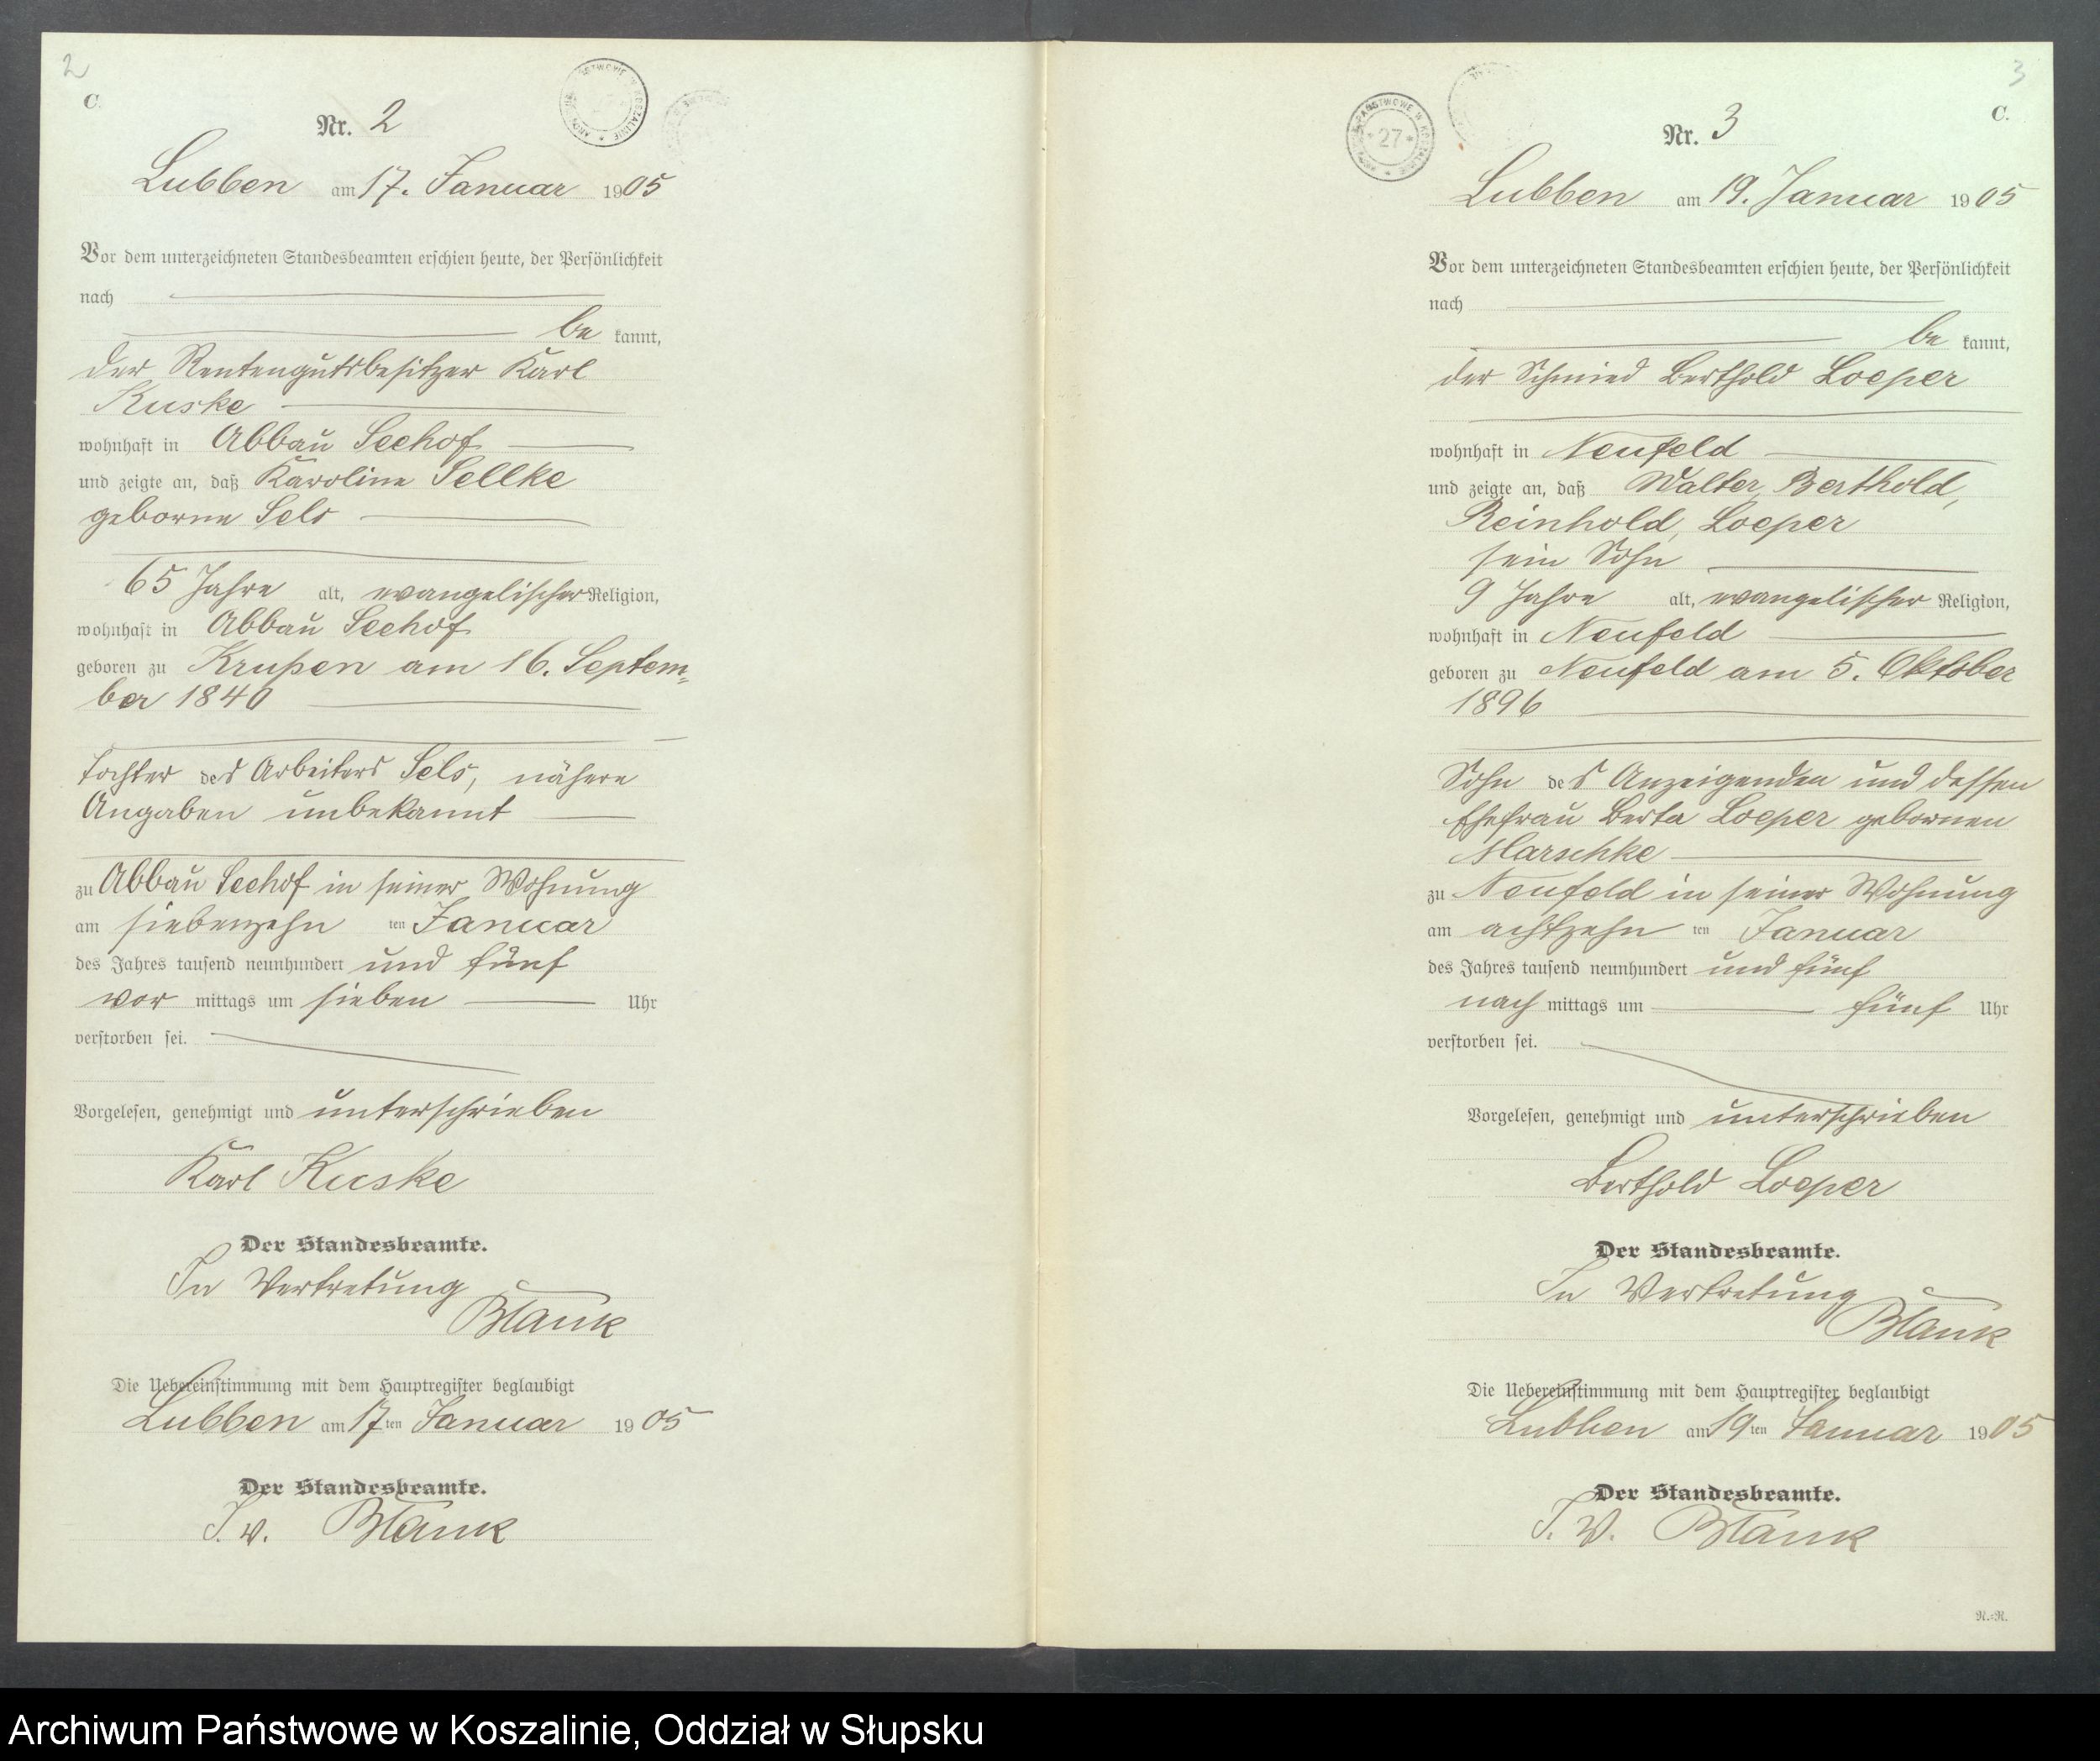 2
C.
Nr. 2
Lubben am 17. Januar 1905
Vor dem unterzeichneten Standesbeamten erschien heute, der Persönlichkeit
nach
be kannt,
der Rentengutsbesitzer Karl
Kuske
wohnhaft in Abbau Seehof
und zeigte an, daß Karoline Sellke
geborne Sels
65 Jahre alt, evangelischer Religion,
wohnhaft in Abbau Seehof
geboren zu Krußen am 16. Septem=
ber 1840
Tochter des Arbeiters Sels, nähere
Angaben unbekannt
zu Abbau Seehof in seiner Wohnung
am siebenzehn ten Januar
des Jahres tausend neunhundert und fünf
vor mittags um sieben Uhr
verstorben sei.
Vorgelesen, genehmigt und unterschrieben
Karl Kuske
Der Standesbeamte.
In Vertretung
Blank
Die Uebereinstimmung mit dem Hauptregister beglaubigt
Lubben am 17ten Januar 1905
Der Standesbeamte.
I. V. Blank
3
C.
ARCHIWUM PAŃSTWOWE W KOSZALINIE
* 27 *
Nr. 3
Lubben am 19. Januar 1905
Vor dem unterzeichneten Standesbeamten erschien heute, der Persönlichkeit
nach
be kannt,
der Schmied Berthold Loeper
wohnhaft in Neufeld
und zeigte an, daß Walter, Berthold,
Reinhold, Loeper
sein Sohn
9 Jahre alt, evangelischer Religion,
wohnhaft in Neufeld
geboren zu Neufeld am 5. Oktober
1896
Sohn des Anzeigenden und dessen
Ehefrau Berta Loeper gebornen
Marschke
zu Neufeld in seiner Wohnung
am achtzehn ten Januar
des Jahres tausend neunhundert und fünf
nach mittags um fünf Uhr
verstorben sei.
Vorgelesen, genehmigt und unterschrieben
Berthold Loeper
Der Standesbeamte.
In Vertretung
Blank
Die Uebereinstimmung mit dem Hauptregister beglaubigt
Lubben am 19ten Januar 1905
Der Standesbeamte.
I. V. Blank
N.=N.
Archiwum Państwowe w Koszalinie, Oddział w Słupsku